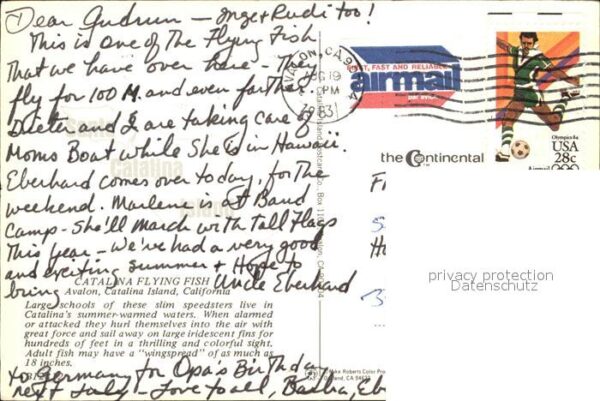 Dear Gudrun - Inge + Rudi too!
This is one of the Flying Fish
that we have over here - They
fly for 100 M. and even farther.
Dieter and I are taking care of
Moms Boat while She is in Hawaii.
Eberhard comes over today, for the
weekend. Marlene is at Band
Camp - She'll March with Tall Flags
This year - We've had a very good
and exciting summer + Hope to
bring Uncle Eberhard
CATALINA FLYING FISH
Avalon, Catalina Island, California
Large schools of these slim speedsters live in
Catalina's summer-warmed waters. When alarmed
or attacked they hurl themselves into the air with
great force and sail away on large iridescent fins for
hundreds of feet in a thrilling and colorful sight.
Adult fish may have a "wingspread" of as much as
18 inches.
to Germany for Opa's Birthday
next July - Love to all, Basha, Eb
Santa
Catalina
Island
AVALON, CA
AUG 19
PM
1983
FAST AND RELIABLE
airmail
par avion
Olympics 84
USA
28c
Airmail
the Continental
privacy protection
Datenschutz
Mike Roberts Color Pro
Oakland, CA